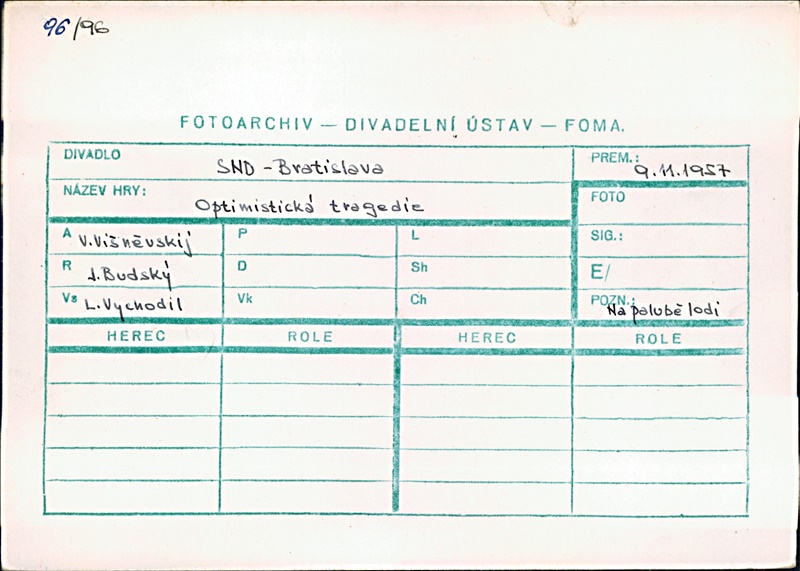 96/96
FOTOARCHIV — DIVADELNÍ ÚSTAV — FOMA.
DIVADLO SND - Bratislava PREM.: 9.11.1957
NÁZEV HRY: Optimistická tragedie FOTO
A V. Višněvskij P L SIG.:
R J. Budský D Sh E/
Vs L. Vychodil Vk Ch POZN.: Na palubě lodi
HEREC ROLE HEREC ROLE